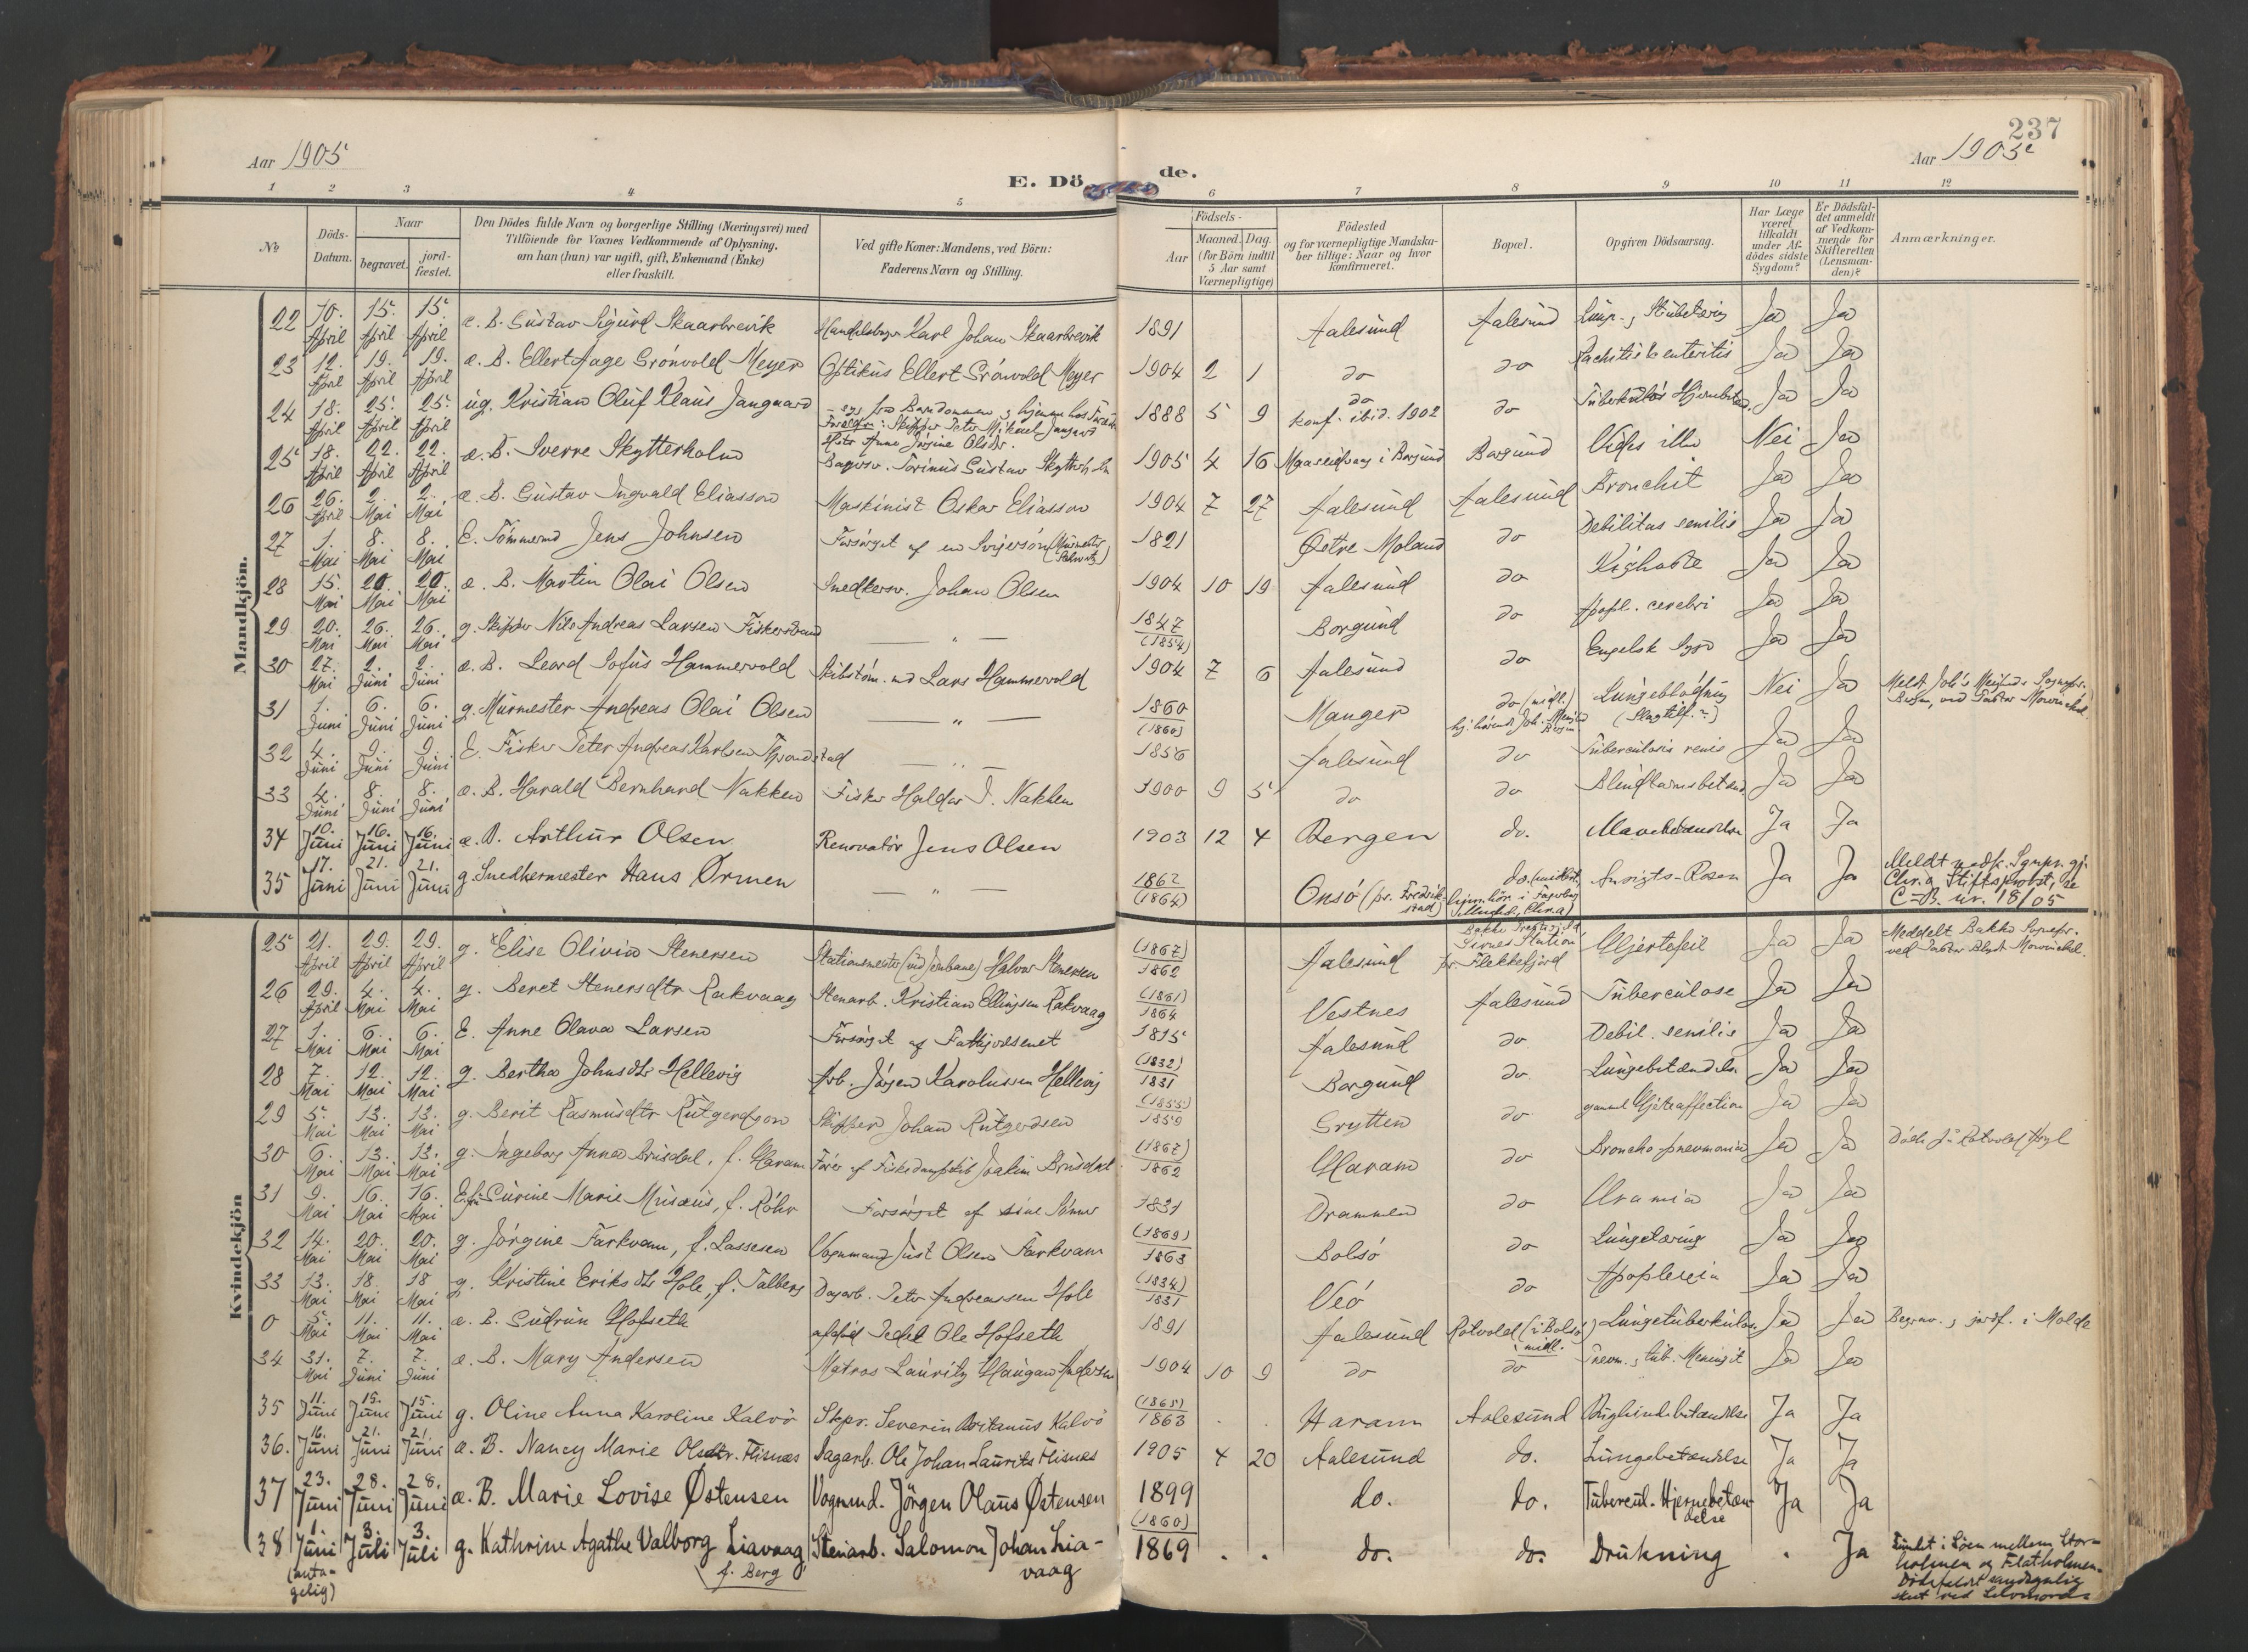 237
Aar 1905
Aar 1905
E. Dö de.
1 2 3 4 5 6 7 8 9 10 11 12
No
Döds-
Datum.
Naar
begravet.
jord-
fæstet.
Den Dödes fulde Navn og borgerlige Stilling (Næringsvei) med
Tilföiende for Voxnes Vedkommende af Oplysning,
om han (hun) var ugift, gift, Enkemand (Enke)
eller fraskilt.
Ved gifte Koner: Mandens, ved Börn:
Faderens Navn og Stilling.
Födsels-
Aar
Maaned. Dag.
(for Börn indtil
5 Aar samt
Værnepligtige)
Födested
og for værnepligtige Mandska-
ber tillige: Naar og hvor
konfirmeret.
Bopæl.
Opgiven Dödsaarsag.
Har Læge
været
tilkaldt
under Af-
dödes sidste
Sygdom?
Er Dödsfal-
det anmeldt
af Vedkom-
mende for
Skifteretten
(Lensman-
den)?
Anmærkninger.
Mandkjön.
22 10. April 15. April 15. April æ. B. Gustav Sigurd Skaarbrevik Karl Johan Skaarbrevik 1891 Aalesund Aalesund Ja Ja
23 12. April 19. April 19. April æ. B. Ellert Aage Grönvold Meyer Optikus Ellert Grönvold Meyer 1904 2 1 do do Rachitis & enteritis Ja Ja
24 18. April 25. April 25. April ug. Kristian Oluf Klaus Jangaard
Forældre: Skipper Peter Mikael Jangaard
1888 5 9 do konf. ibid. 1902 do Ja Ja
25 18. April 22. April 22. April æ. B. Sverre Skytterholm Gustav 1905 4 16 i Borgund Borgund Vides ikke Nei Ja
26 26. April 2. Mai 2. Mai æ. B. Gustav Ingvald Eliassen Maskinist Oskar Eliassen 1904 7 27 Aalesund Aalesund Bronchit Ja Ja
27 1. Mai 8. Mai 8. Mai E. Tömmermd Jens Johnsen Forsörget af en Svigersön 1821 Östre Moland do Debilitas senilis Ja Ja
28 15. Mai 20. Mai 20. Mai æ. B. Martin Olai Olsen Snedkersv. Johan Olsen 1904 10 19 Aalesund do Kighoste Ja Ja
29 20. Mai 26. Mai 26. Mai g. Skipper Nils Andreas Larsen Fiskerstrand — „ — 1847 (1854) Borgund do Apopl. cerebri Ja Ja
30 27. Mai 2. Juni 2. Juni æ. B. Leard Sofus Hammervold Skibstöm.md Lars Hammervold 1904 7 6 Aalesund do Engelsk Syge Ja Ja
31 1. Juni 6. Juni 6. Juni g. Murmester Andreas Olai Olsen — „ — 1860 (1860) Manger do (midl.) Lungeblödning Nei Ja
32 4. Juni 9. Juni 9. Juni E. Fisker Peter Andreas Karlsen — „ — 1856 Aalesund do Tuberculosis renis Ja Ja
33 4. Juni 8. Juni 8. Juni æ. B. Harald Bernhard Nakken Fisker Haldor J. Nakken 1900 9 5 do do Blindtarmsbetænd. Ja Ja
34 10. Juni 16. Juni 16. Juni æ. B. Arthur Olsen Renovatör Jens Olsen 1903 12 4 Bergen do. Mavebetændelse Ja Ja
35 17. Juni 21. Juni 21. Juni g. Snedkermester Hans Ørmen — „ — 1862 (1864) Onsö (pr. Fredrik-stad) do. (midlert. Ansigts-Rosen Ja Ja
Chr.a Stiftsprovst, se
C=B. nr. 18/05
Kvindekjön
25 21. April 29. April 29. April g. Elise Olivia Stenersen Stationsmester (ved Jernbane) Halvor Stenersen (1867) 1862 Aalesund Sirnes Station pr. Flekkefjord Hjertefeil Ja Ja Meddelt Bakke Sognepr.
26 29. April 4. Mai 4. Mai g. Beret Stenersdtr Rakvaag Stenarb. Kristian Ellingsen Rakvaag (1861) 1864 Vestnes Aalesund Tuberculose Ja Ja
27 1. Mai 6. Mai 6. Mai E. Anne Olava Larsen Forsörget af Fattigvæsenet 1815 Aalesund do Debil. senilis Ja Ja
28 7. Mai 12. Mai 12. Mai g. Bertha Johnsdtr Hellevig Arb. Jörgen Karolussen Hellevig (1832) 1831 Borgund do Lungebetændelse Ja Ja
29 5. Mai 13. Mai 13. Mai g. Berit Rasmusdtr Rutgerdson Skipper Johan Rutgerdsen (1855) 1859 Grytten do gammel Hjerteaffection Ja Ja
30 6. Mai 13. Mai 13. Mai g. Ingeborg Anna Brusdal, f. Haram Förer af Fiskedampskib Joakim Brusdal (1867) 1862 Haram do Broncho-pneumonia Ja Ja
31 9. Mai 16. Mai 16. Mai E. fru Surine Marie Musæus, f. Röhr Forsörget af sine Sönner 1831 Drammen do Uræmia Ja Ja
32 14. Mai 20. Mai 20. Mai g. Jörgine Farkvam, f. Lassesen Vognmand Just Olsen Farkvam (1869) 1863 Bolsö do Lungetæring Ja Ja
33 13. Mai 18. Mai 18 Mai g. Kristine Eriksdtr Hole, f. Talberg Dagarb. Peter Andreassen Hole (1834) 1831 Veö do Apoplexia Ja Ja
0 5. Mai 11. Mai 11. Mai æ. B. Gudrun Hofseth Ole Hofseth 1891 Aalesund Rotvold (i Bolsö) midl. Lungetuberkulose Ja Ja Begrav. & jordf. i Molde
34 31. Mai 7. Juni 7. Juni æ. B. Mary Andersen Matros Lauritz Haugan Andersen 1904 10 9 do do Pneum. & tub. Meningit Ja Ja
35 11. Juni 15. Juni 15. Juni g. Oline Anna Karoline Kalvö Skpr. Severin Kalvö (1865) 1863 . . Haram Aalesund Bughindebetændelse Ja Ja
36. 16. Juni 21. Juni 21. Juni æ. B. Nancy Marie Olsdtr. Flisnæs Dagarb. Ole Johan Laurits Flisnæs 1905 4 20 Aalesund do. Lungebetændelse Ja Ja
37 23. Juni 28. Juni 28. Juni æ. B. Marie Lovise Østensen Vogmnd. Jörgen Olaus Østensen 1899 do. do. Tubercul. Hjernebetæn-
delse Ja Ja
38 1. Juni (anta-
gelig) 3. Juli 3. Juli g. Kathrine Agathe Valborg Liavaag
f. Berg Stenarb. Salomon Johan Lia-
vaag (1860) 1869 . . do. do. Drukning . Ja
Fundet i Söen mellem Stor-
holmen og Flatholmen.
Dödsfaldet sandsynlig
skeet ved Selvmord